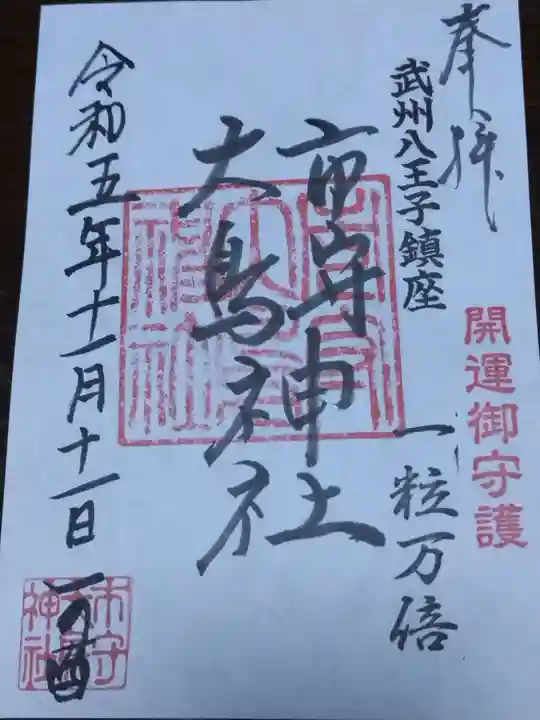 奉拝
武州八王子鎮座
開運御守護
一粒万倍
市守神社
大鳥神社
令和五年十一月十一日
一の酉
市守
神社